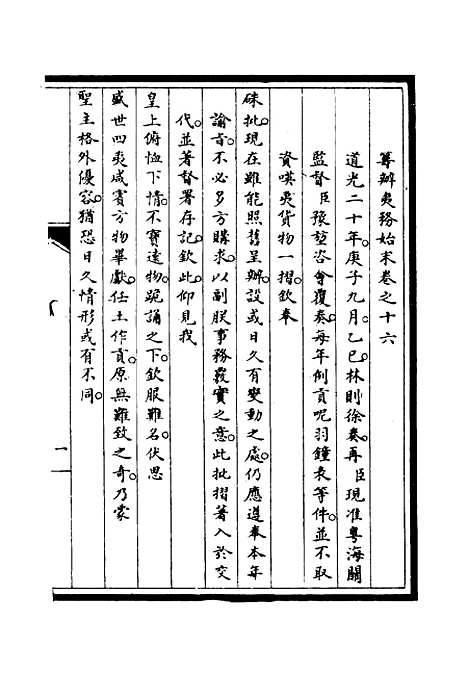 籌辦夷務始末卷之十六
道光二十年。庚子九月。乙巳。林則徐奏。再臣現准粵海關
監督臣豫堃咨會覆奏。每年例貢呢羽鐘表等件。並不取
資嘆夷貨物一摺。欽奉
硃批。現在雖能照舊呈辦。設或日久有變動之處。仍應遵奉本年
諭旨。不必多方購求。以副朕事務覈實之意。此批摺著入於交
代。並著督署存記。欽此。仰見我
皇上俯恤下情。不寶遠物。跪誦之下。欽服難名。伏思
盛世四夷咸賓。方物畢獻。任土作貢。原無難致之奇。乃蒙
聖主格外優容。猶恐日久情形或有不同。
一